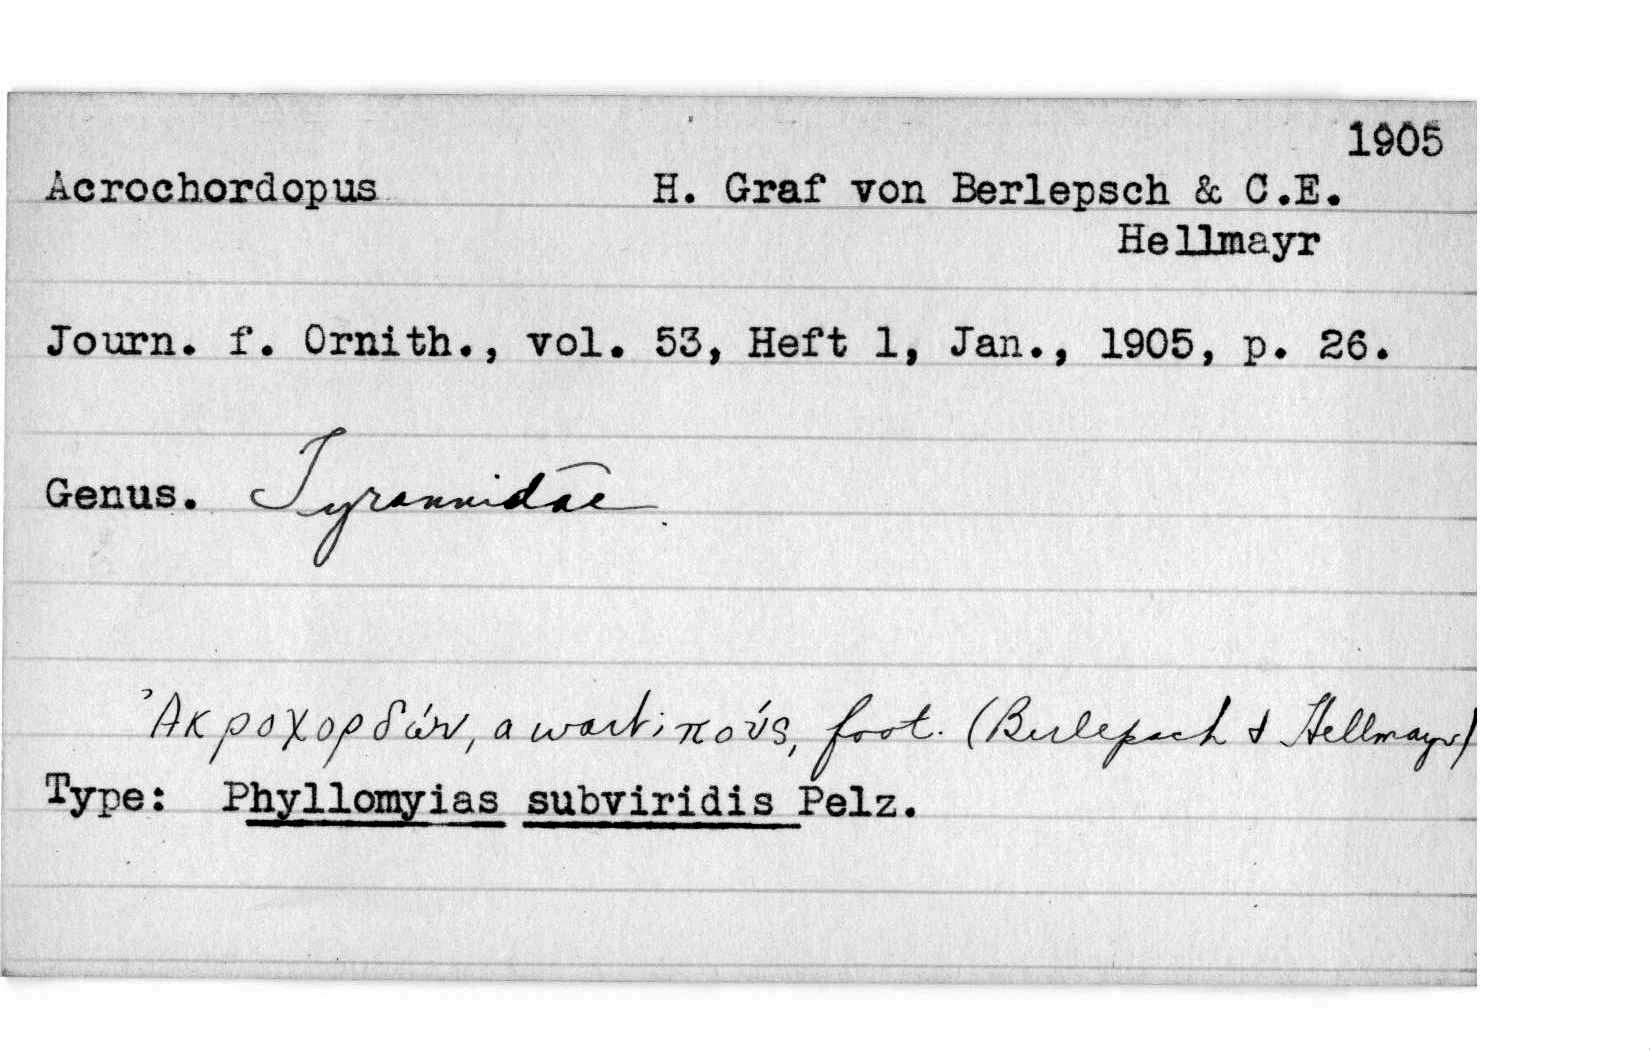 1905
Acrochordopus H. Graf von Berlepsch & C.E.
Hellmayr
Journ. f. Ornith., vol. 53, Heft 1, Jan., 1905, p. 26.
Genus. Tyrannidae
Ἀκροχορδών, a wart; πούς, foot. (Berlepsch & Hellmayr)
Type: Phyllomyias subviridis Pelz.